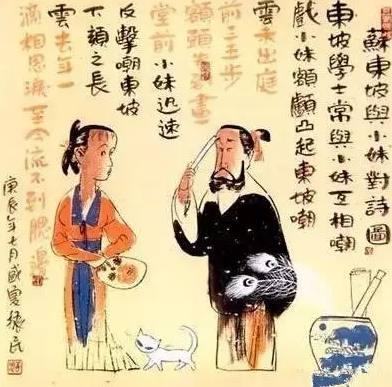 蘇東坡與小妹對詩圖
東坡學士常與小妹互相嘲
戲小妹額顱凸起東坡嘲
雲未出庭
前三五步
額頭畫
堂前小妹迅速
反擊嘲東坡
下頦之長
雲去年一
滴相思淚至今流不到腮邊
庚辰年七月盛夏